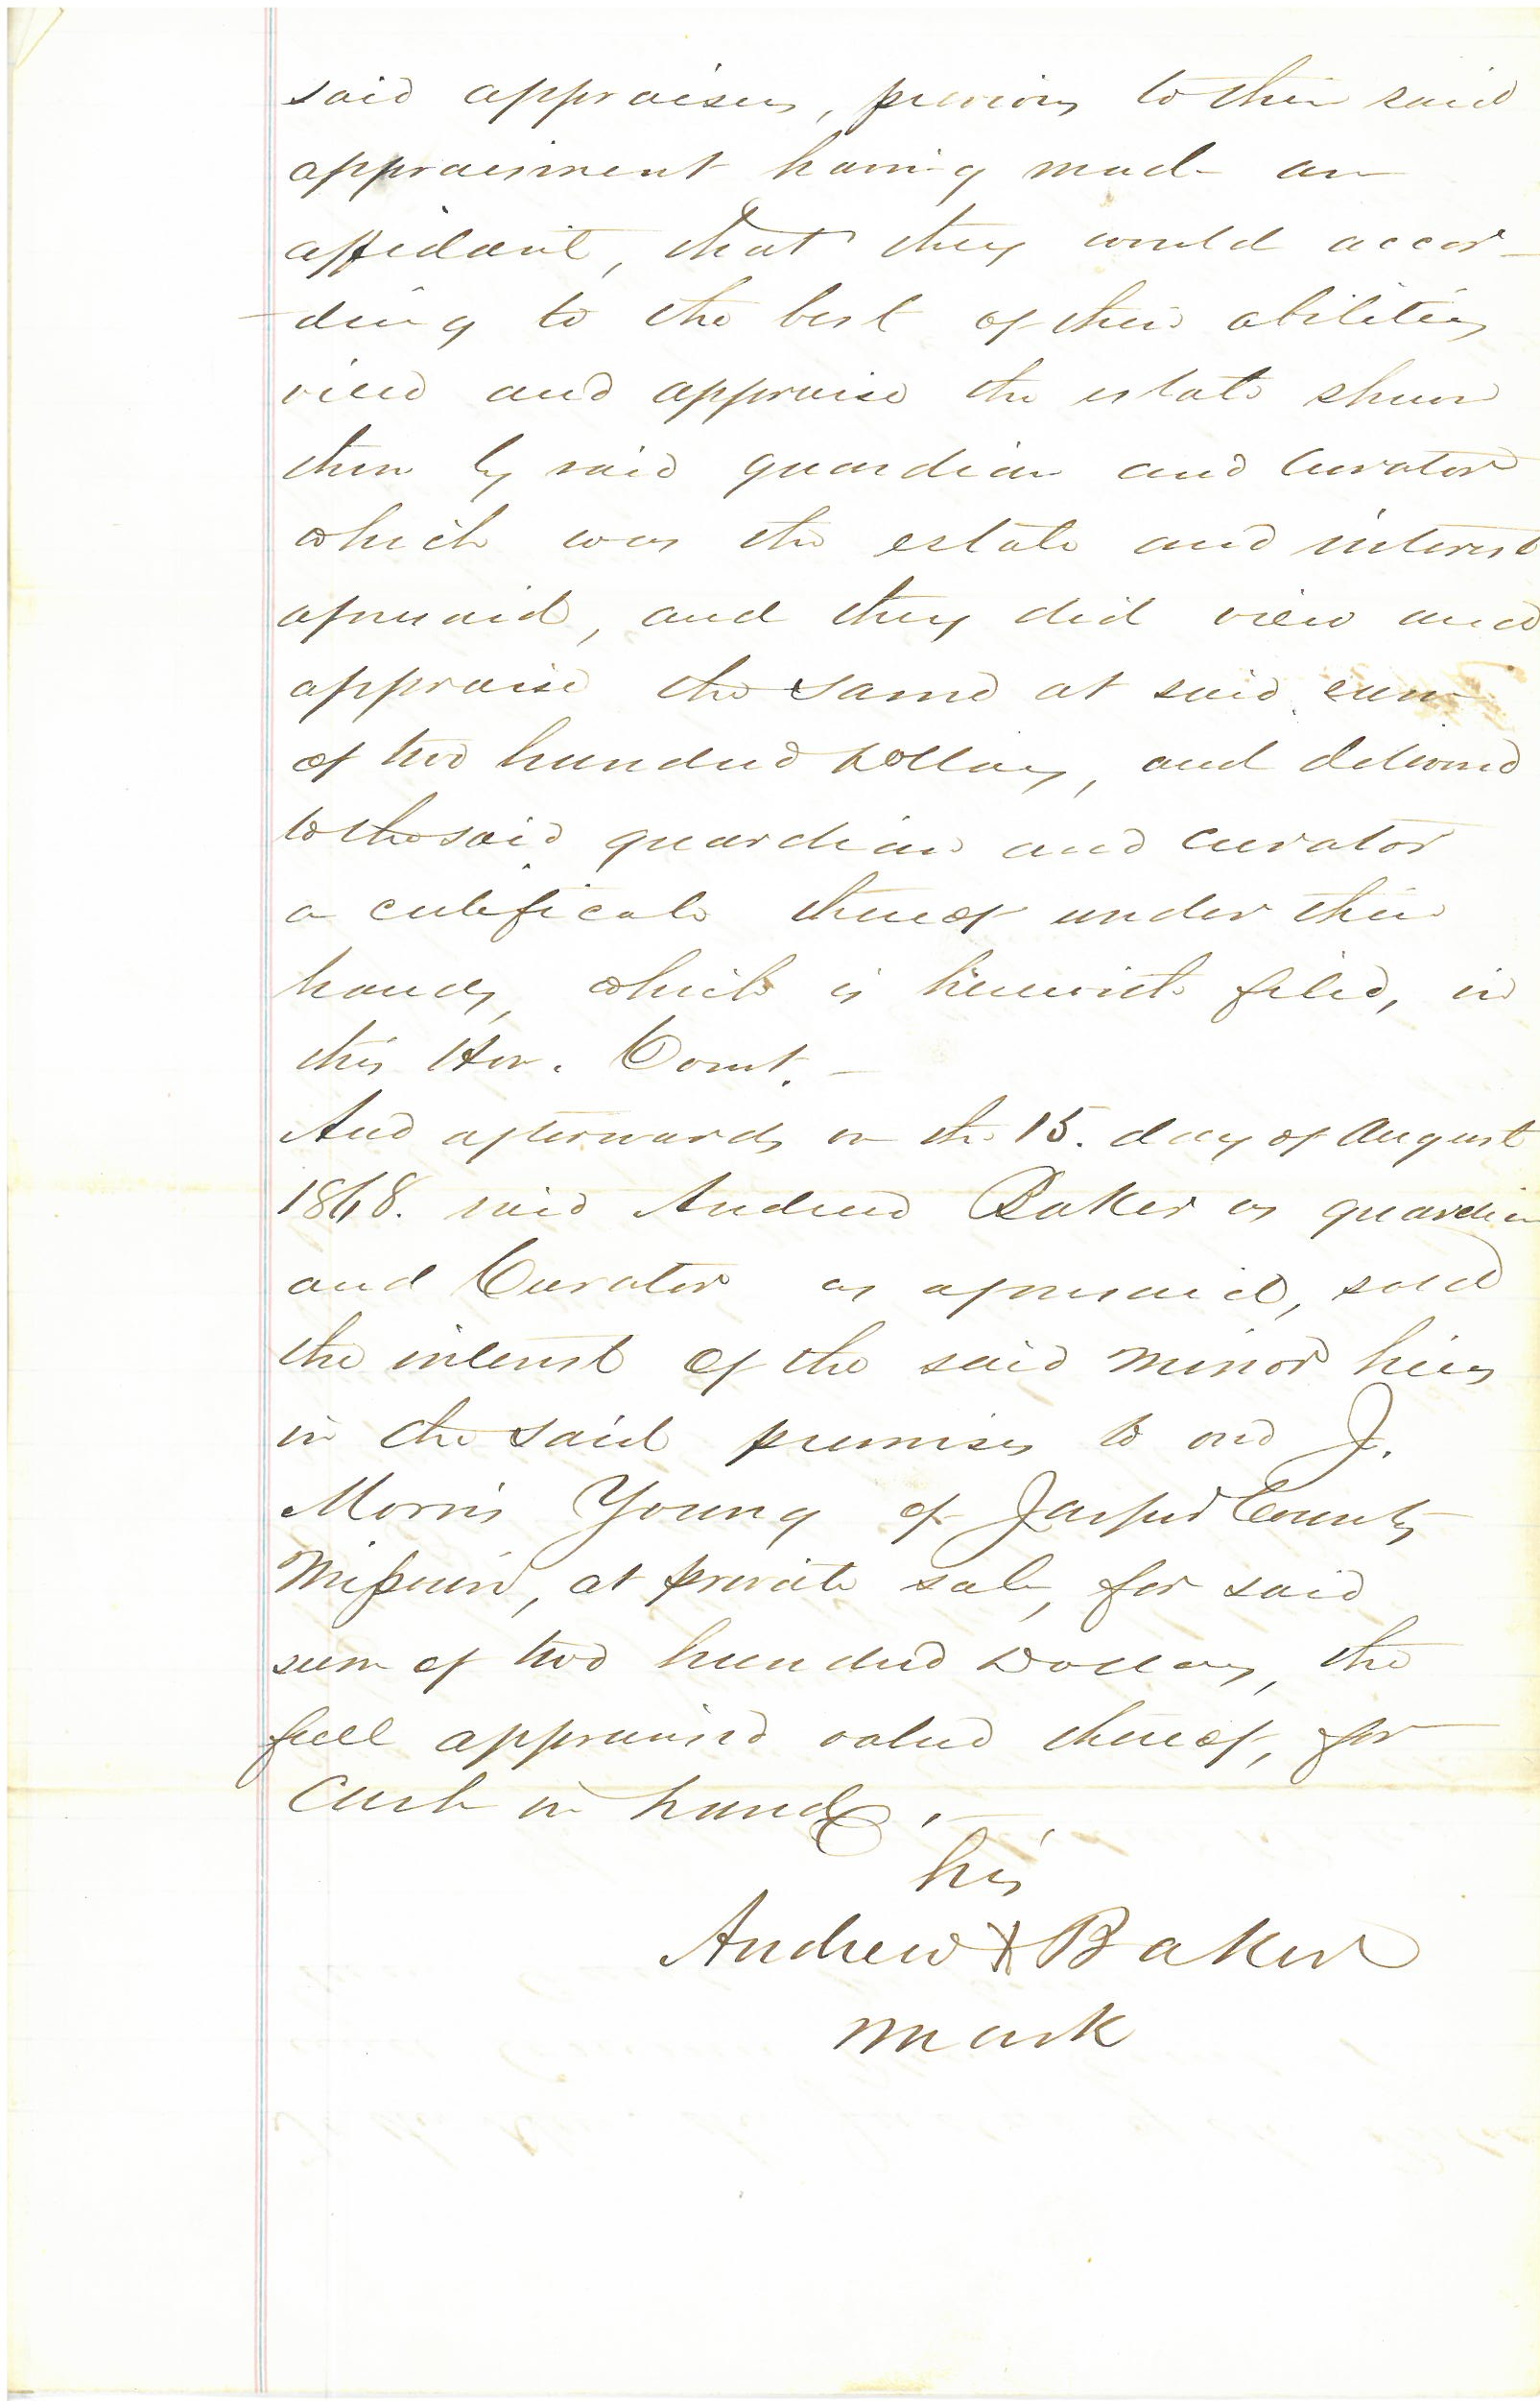 said appraisers, previous to their said
appraisement having made an
affidavit, that they would accor-
-ding to the best of their abilities
view and appraise the estate shewn
them by said guardian and Curator
which was the estate and interest
aforesaid, and they did view and
appraise the same at said sum
of two hundred Dollars, and delivered
to the said guardian and curator
a certificate thereof under their
hands, which is herewith filed, in
this Hon. Court. -
And afterwards on the 15. day of August
1868. said Andrew Baker as guardian
and Curator as aforesaid, sold
the interest of the said minor heirs
in the said premises to one J.
Morris Young of Jasper County
Missouri, at private sale, for said
sum of two hundred Dollars, the
full appraised value thereof, for
Cash in hand. -
his
Andrew X Baker
mark